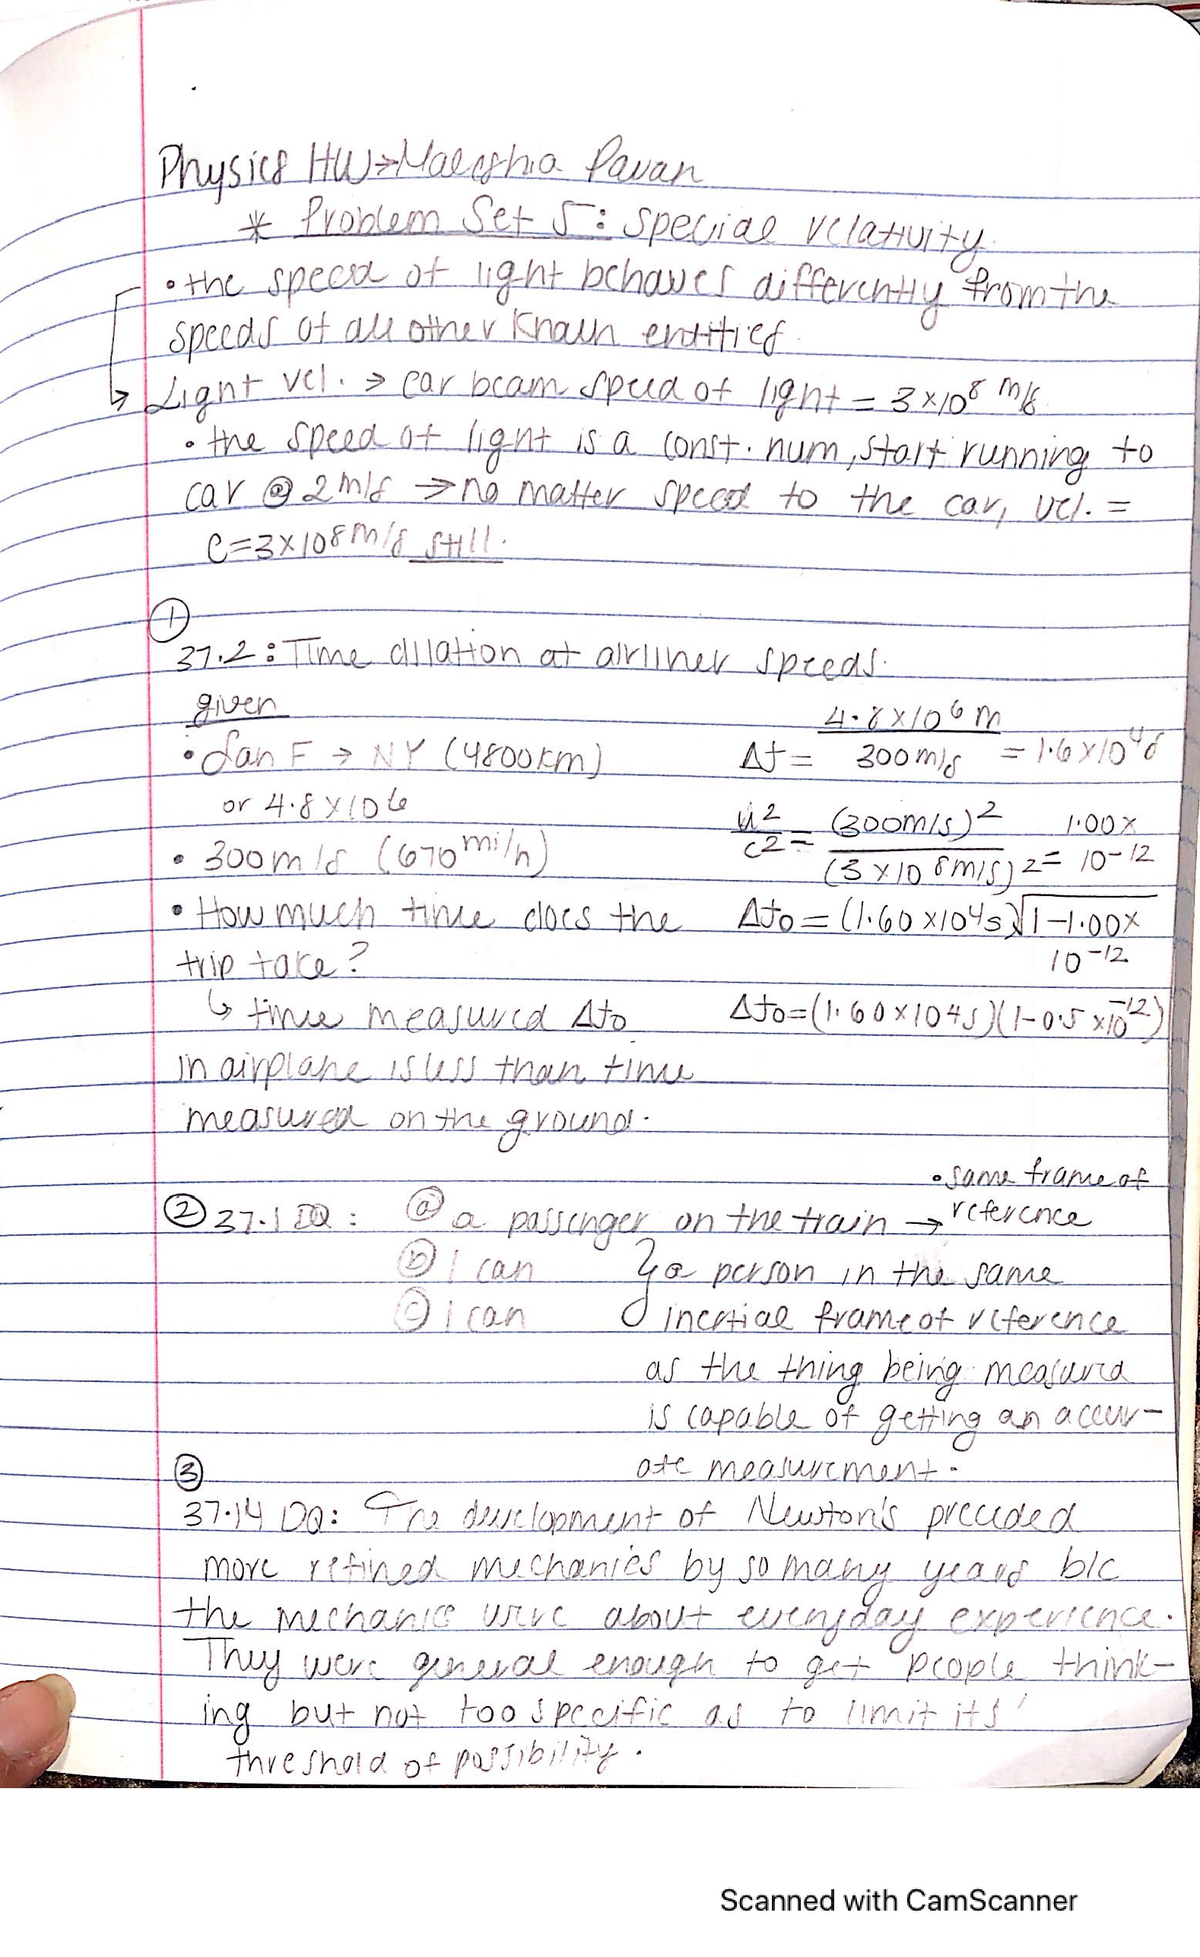 Physics HW → Maeeshia Pavan
* Problem Set 5: Special relativity.
• the speed of light behaves differently from the
speeds of all other known entities.
Light vel. → car beam speed of light = 3×10⁸ m/s.
• the speed of light is a const. num, start running to
car @ 2m/s → no matter speed to the car, vel. =
c=3×10⁸m/s still.
①
37.2: Time dilation at airliner speeds.
given
• San F → NY (4800km)
or 4.8×10⁶
• 300m/s (670 mi/h)
• How much time does the
trip take?
↳ time measured Δt₀
in airplane is less than time
measured on the ground.
Δt = 4.8×10⁶m / 300m/s = 1.6×10⁴s
u²/c² = (300m/s)² / (3×10⁸m/s)² = 1.00×10⁻¹²
Δt₀ = (1.60×10⁴s)√1-1.00×
10⁻¹²
Δt₀=(1.60×10⁴s)(1-0.5×10⁻¹²)
② 37.1 DQ: ⓐ a passenger on the train → • same frame of
reference
ⓑ I can } a person in the same
ⓒ I can inertial frame of reference
as the thing being measured
is capable of getting an accur-
ate measurement.
③
37.14 DQ: The development of Newton's preceded
more refined mechanics by so many years b/c
the mechanics were about everyday experience.
They were general enough to get people think-
ing but not too specific as to limit its
threshold of possibility.
Scanned with CamScanner